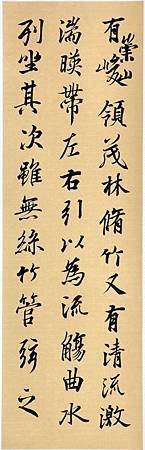 有崇山峻領茂林脩竹又有清流激
湍暎帶左右引以為流觴曲水
列坐其次雖無絲竹管弦之